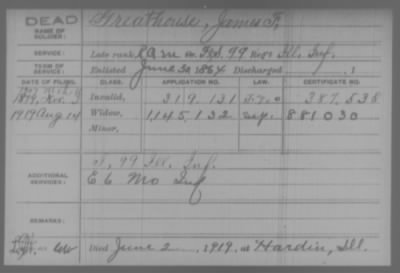 DEAD
NAME OF SOLDIER: Greathouse, James F.
SERVICE: Late rank, Regt Ill. Inf.
TERM OF SERVICE: Enlisted June 30, 1864 Discharged , 1
DATE OF FILING. CLASS. APPLICATION NO. LAW. CERTIFICATE NO.
Nov. 3 Invalid, 319.131 387.535
1919 Aug 14 Widow, 1145.132 881030
Minor,
ADDITIONAL SERVICES: 99 Ill. Inf.
E 6 Mo Inf
REMARKS:
Died June 2, 1919, at Hardin, Ill.